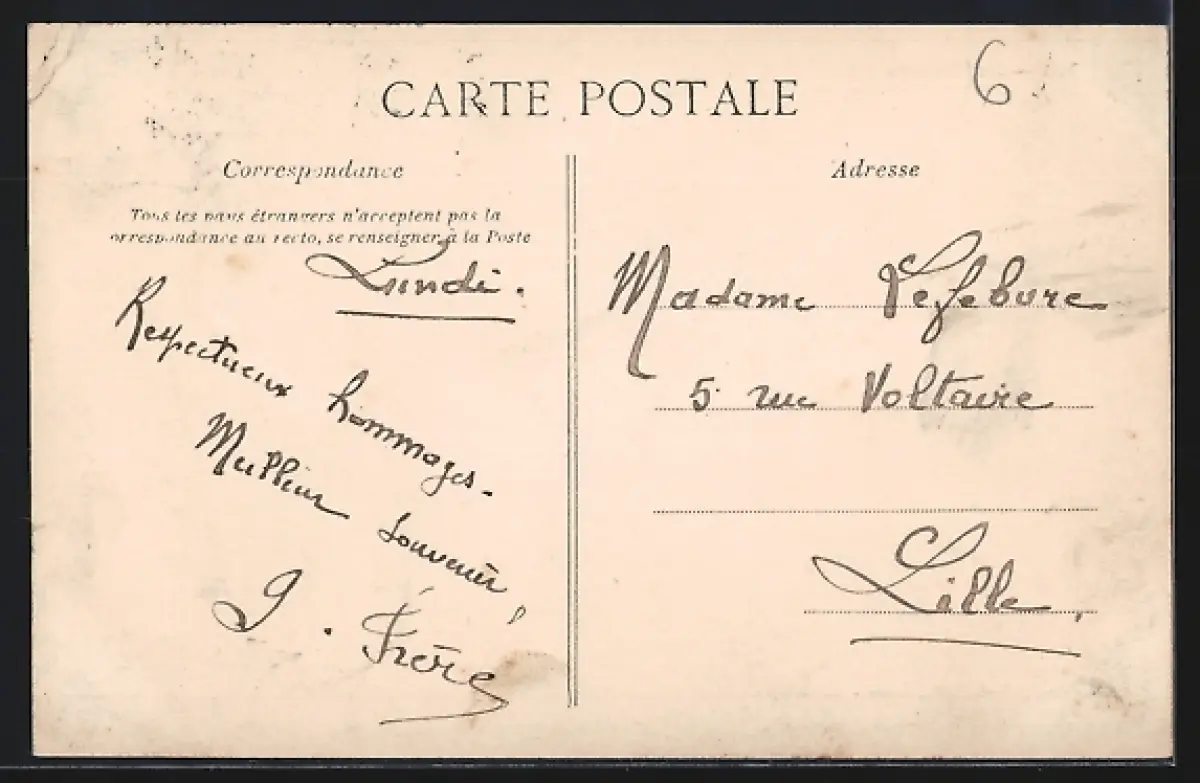 CARTE POSTALE
6
Correspondance
Tous les pays étrangers n'acceptent pas la
correspondance au recto, se renseigner à la Poste
Lundi.
Respectueux hommages.
Meilleur souvenir,
J. Frère
Adresse
Madame Lefebvre
5 rue Voltaire
Lille,